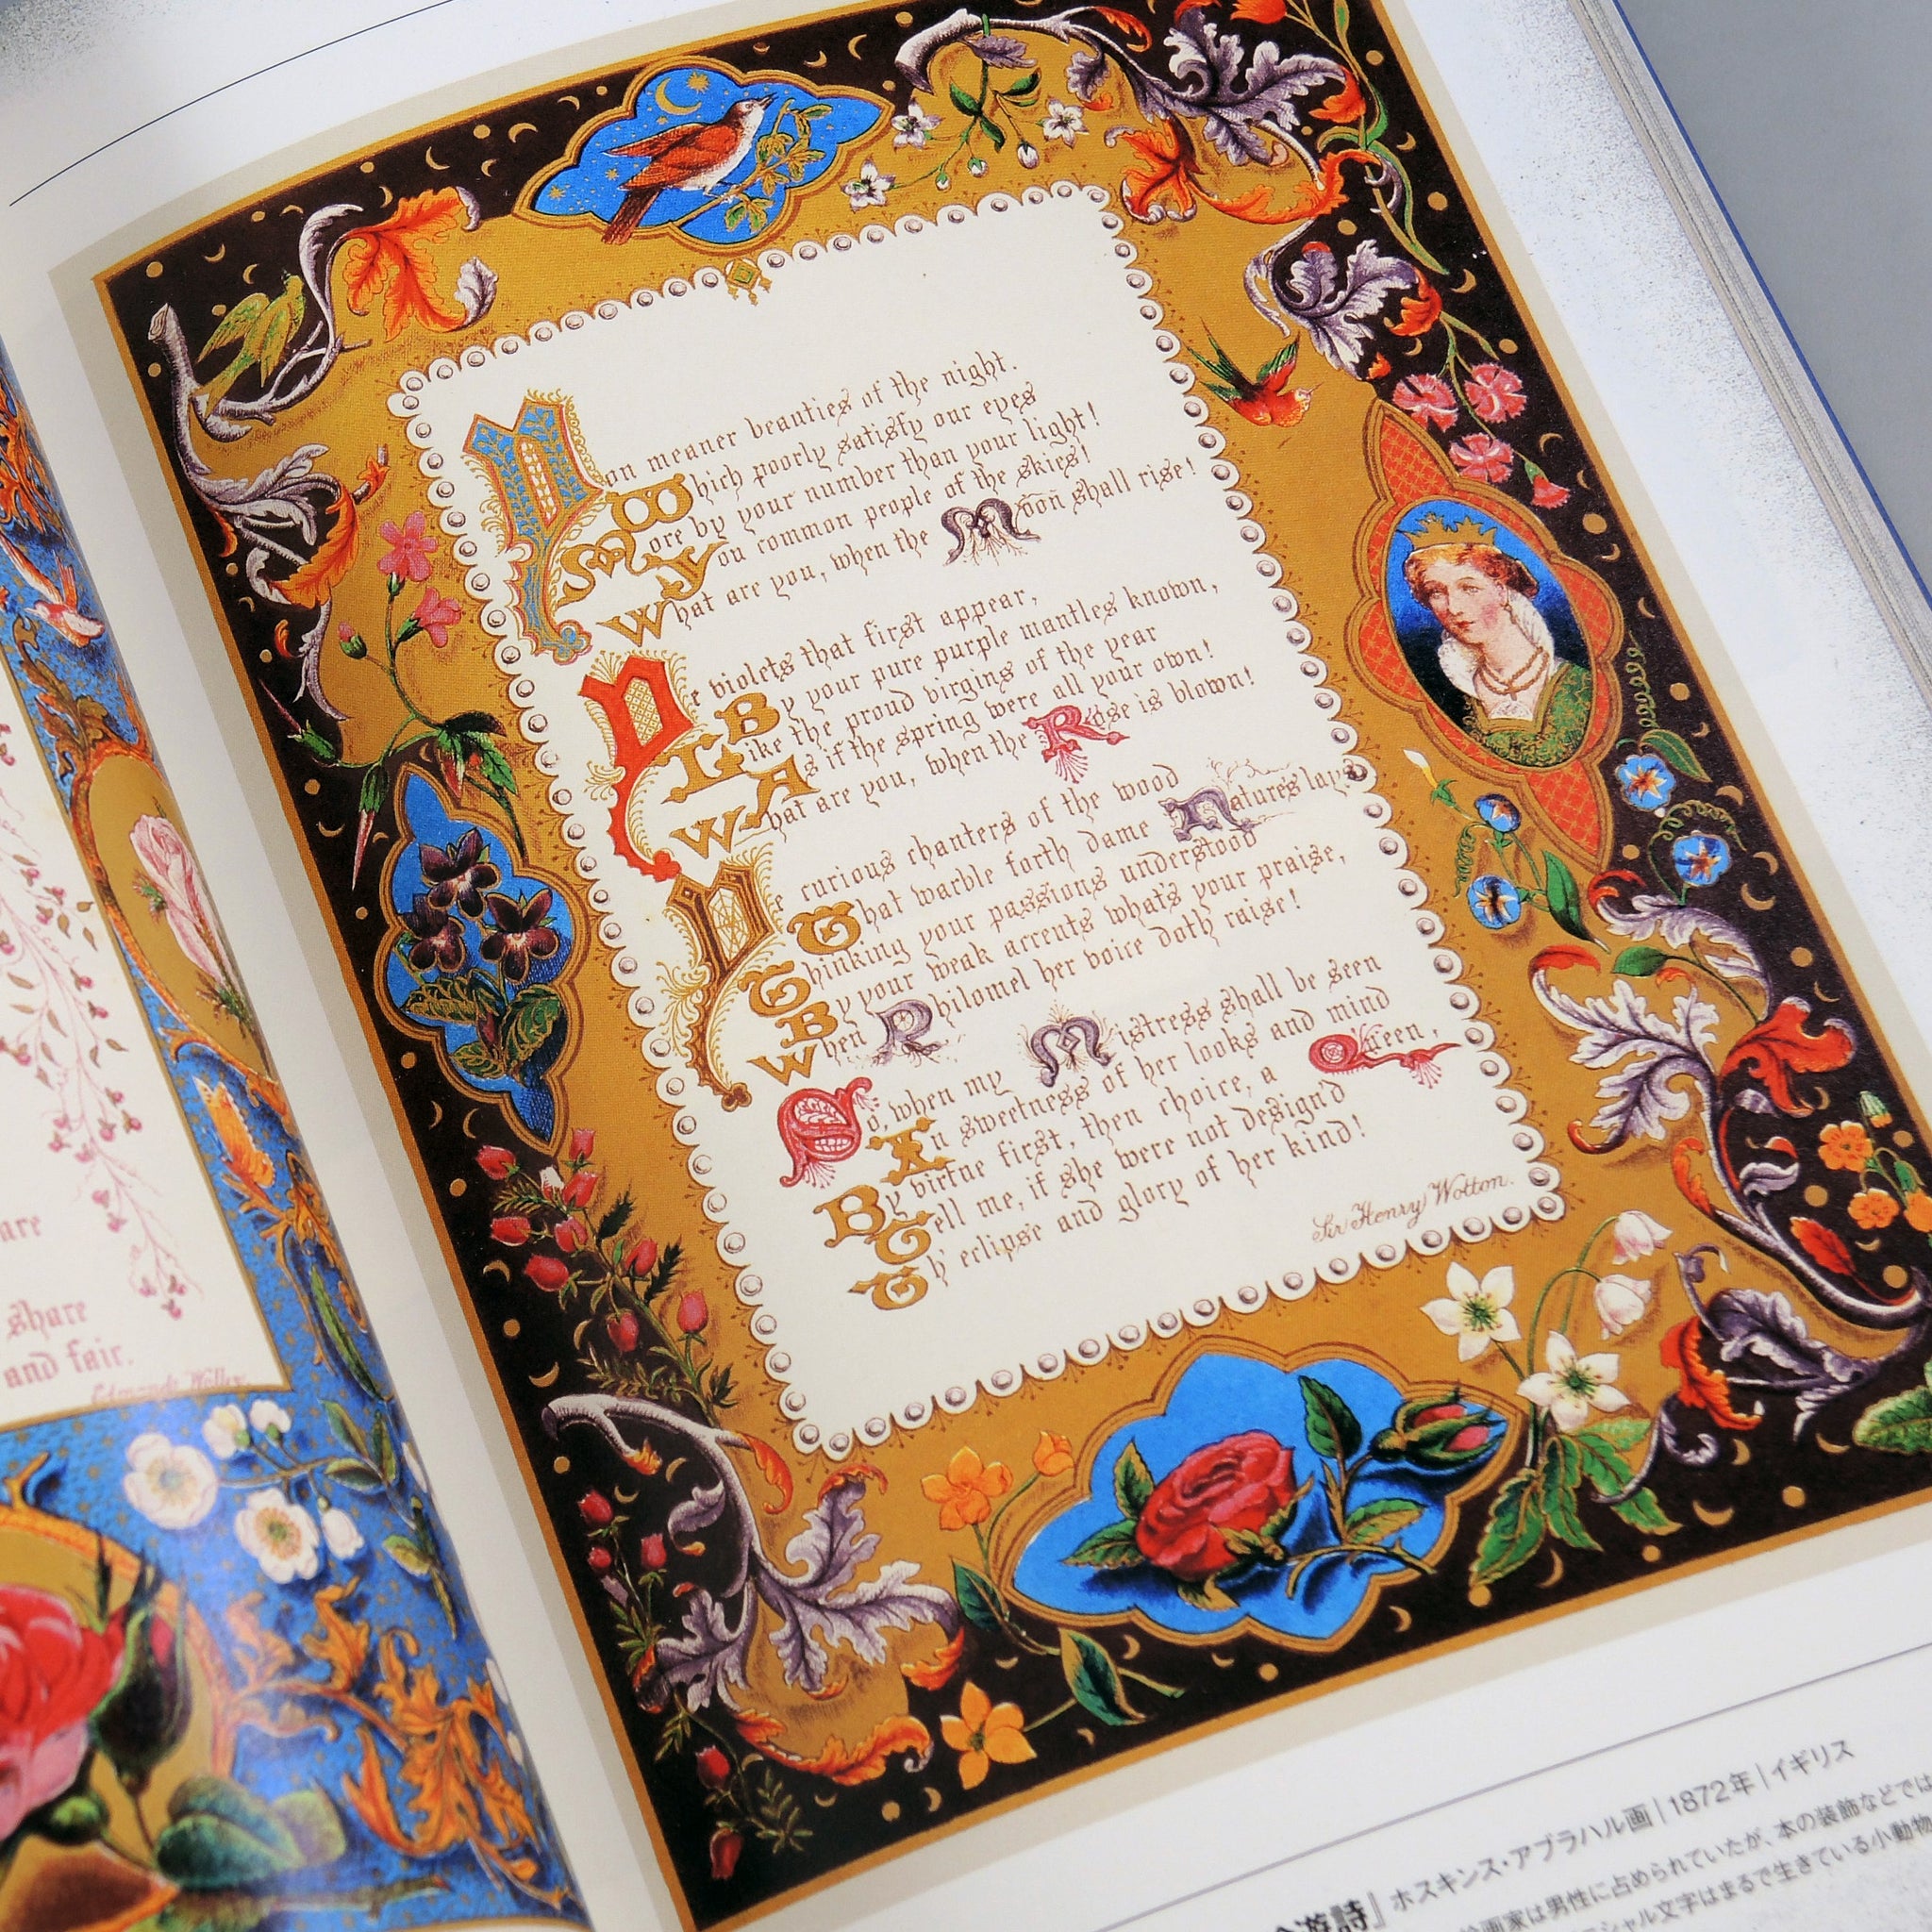 are
share
and fair.
You meaner beauties of the night.
Which poorly satisfy our eyes
More by your number than your light!
You common people of the skies!
What are you, when the Moon shall rise!
Ye violets that first appear,
By your pure purple mantles known,
Like the proud virgins of the year
As if the spring were all your own!
What are you, when the Rose is blown!
Ye curious chanters of the wood
That warble forth dame Nature's lays
Thinking your passions understood
By your weak accents what's your praise,
When Philomel her voice doth raise!
So, when my Mistress shall be seen
In sweetness of her looks and mind
By virtue first, then choice, a Queen,
Tell me, if she were not design'd
Th' eclipse and glory of her kind!
Sir Henry Wotton.
遊詩』 ホスキンス・アブラハル画 | 1872年 | イギリス
画家は男性に占められていたが、本の装飾などでは
シャル文字はまるで生きている小動物